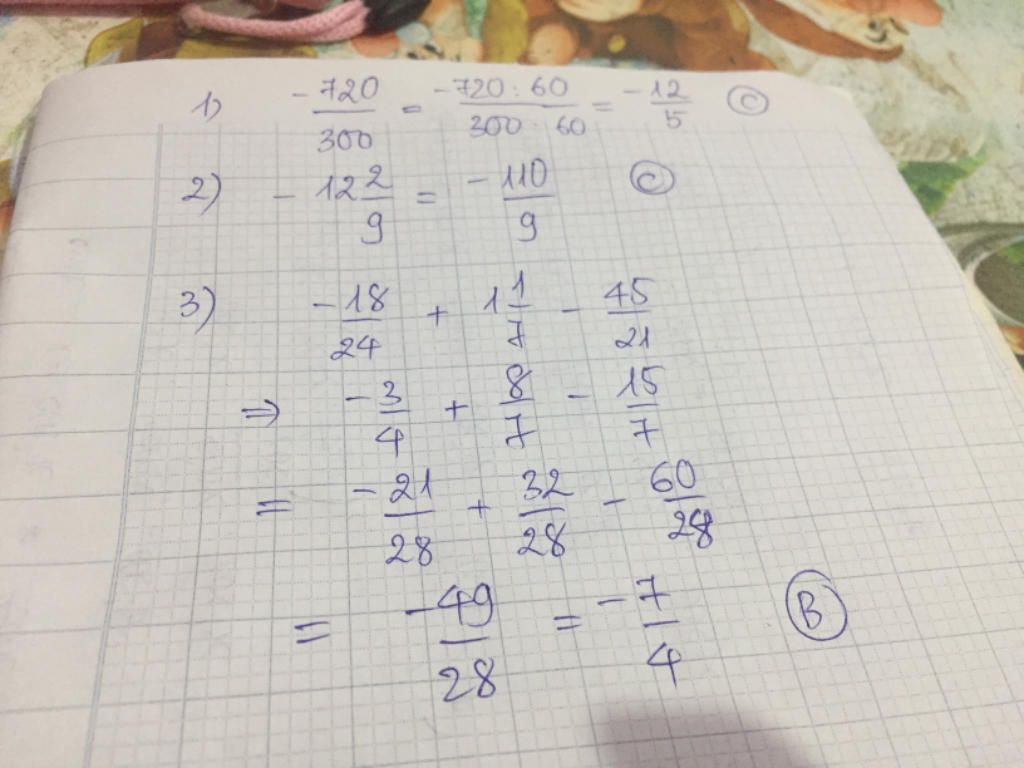 1) -720/300 = -720 : 60/300 : 60 = -12/5 (C)
2) - 12 2/9 = -110/9 (C)
3) -18/24 + 1 1/7 - 45/21
⇒ -3/4 + 8/7 - 15/7
= -21/28 + 32/28 - 60/28
= -49/28 = -7/4 (B)